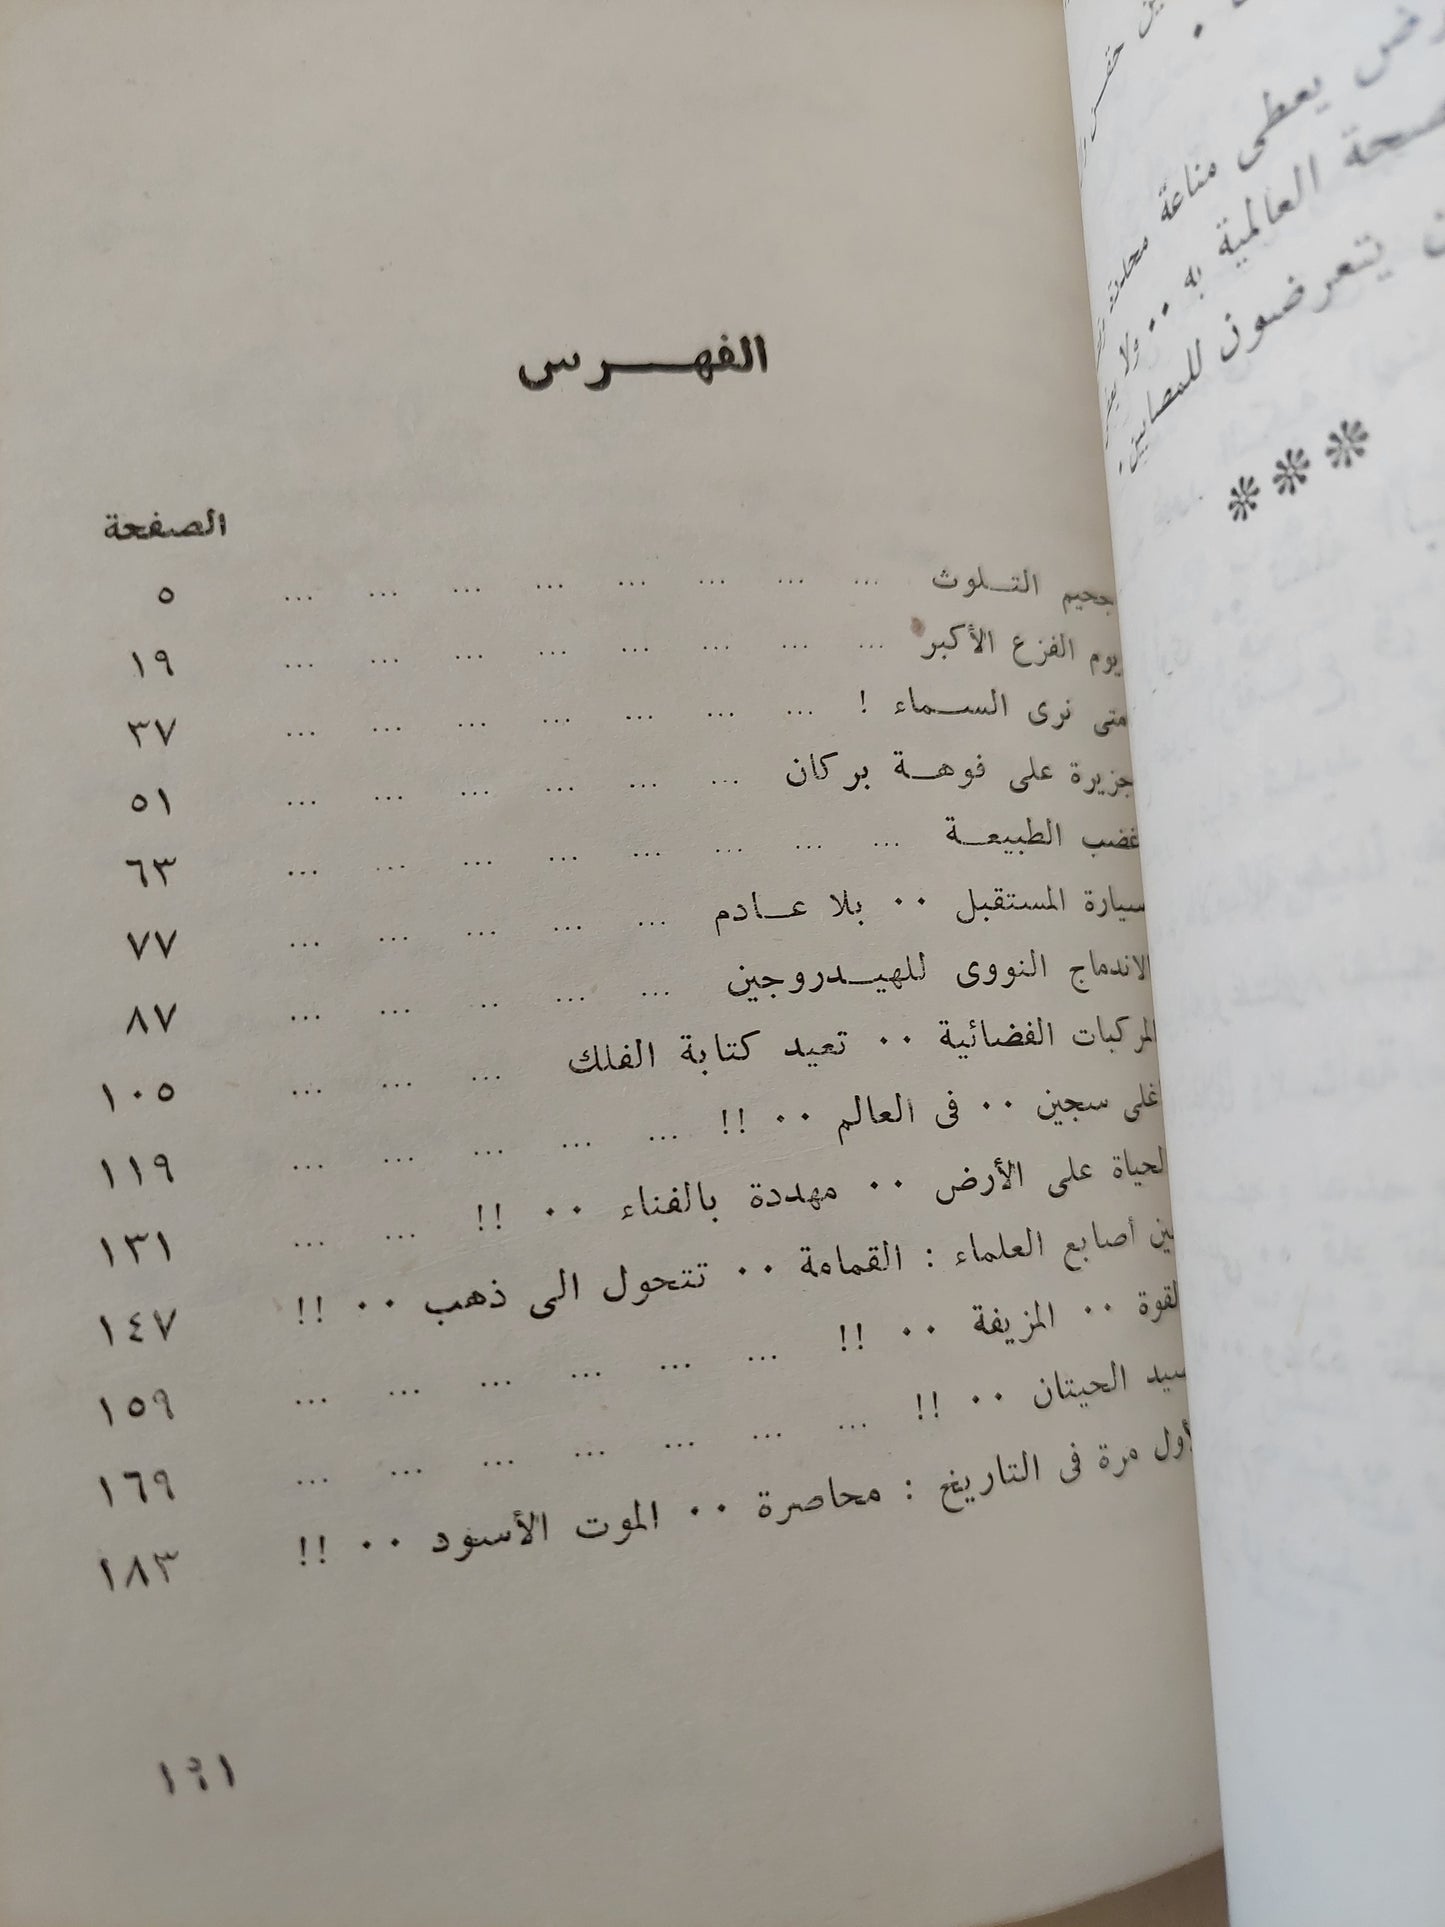 الفهرس
الصفحة
جحيم التلوث ... ... ... ... ... ... ... ... ٥
يوم الفزع الأكبر ... ... ... ... ... ... ... ... ١٩
متى نرى السماء ! ... ... ... ... ... ... ... ٣٧
جزيرة على فوهة بركان ... ... ... ... ... ... ٥١
غضب الطبيعة ... ... ... ... ... ... ... ... ٦٣
سيارة المستقبل ٠٠ بلا عادم ... ... ... ... ... ٧٧
الاندماج النووى للهيدروجين ... ... ... ... ... ٨٧
المركبات الفضائية ٠٠ تعيد كتابة الفلك ... ... ... ١٠٥
أغلى سجين ٠٠ فى العالم ٠٠ !! ... ... ... ... ... ١١٩
الحياة على الأرض ٠٠ مهددة بالفناء ٠٠ !! ... ... ١٣١
بين أصابع العلماء : القمامة ٠٠ تتحول الى ذهب ٠٠ !! ١٤٧
القوة ٠٠ المزيفة ٠٠ !! ... ... ... ... ... ... ١٥٩
سيد الحيتان ٠٠ !! ... ... ... ... ... ... ... ١٦٩
لأول مرة فى التاريخ : محاصرة ٠٠ الموت الأسود ٠٠ !! ١٨٣
١٩١
يعطى مناعة
العالمية به ٠٠ ولا
يتعرضون للمصابين ٠